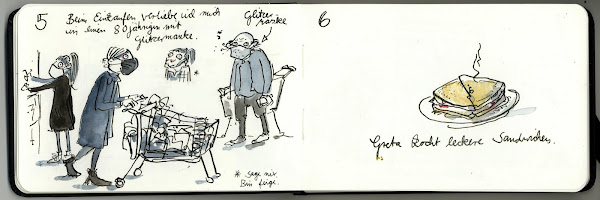 5
Beim Einkaufen verliebe ich mich
in einen 80jährigen mit
Glitzermaske.
Glitzer
maske
*
* Sage nix
Bin feige.
6
Greta kocht leckere Sandwiches.